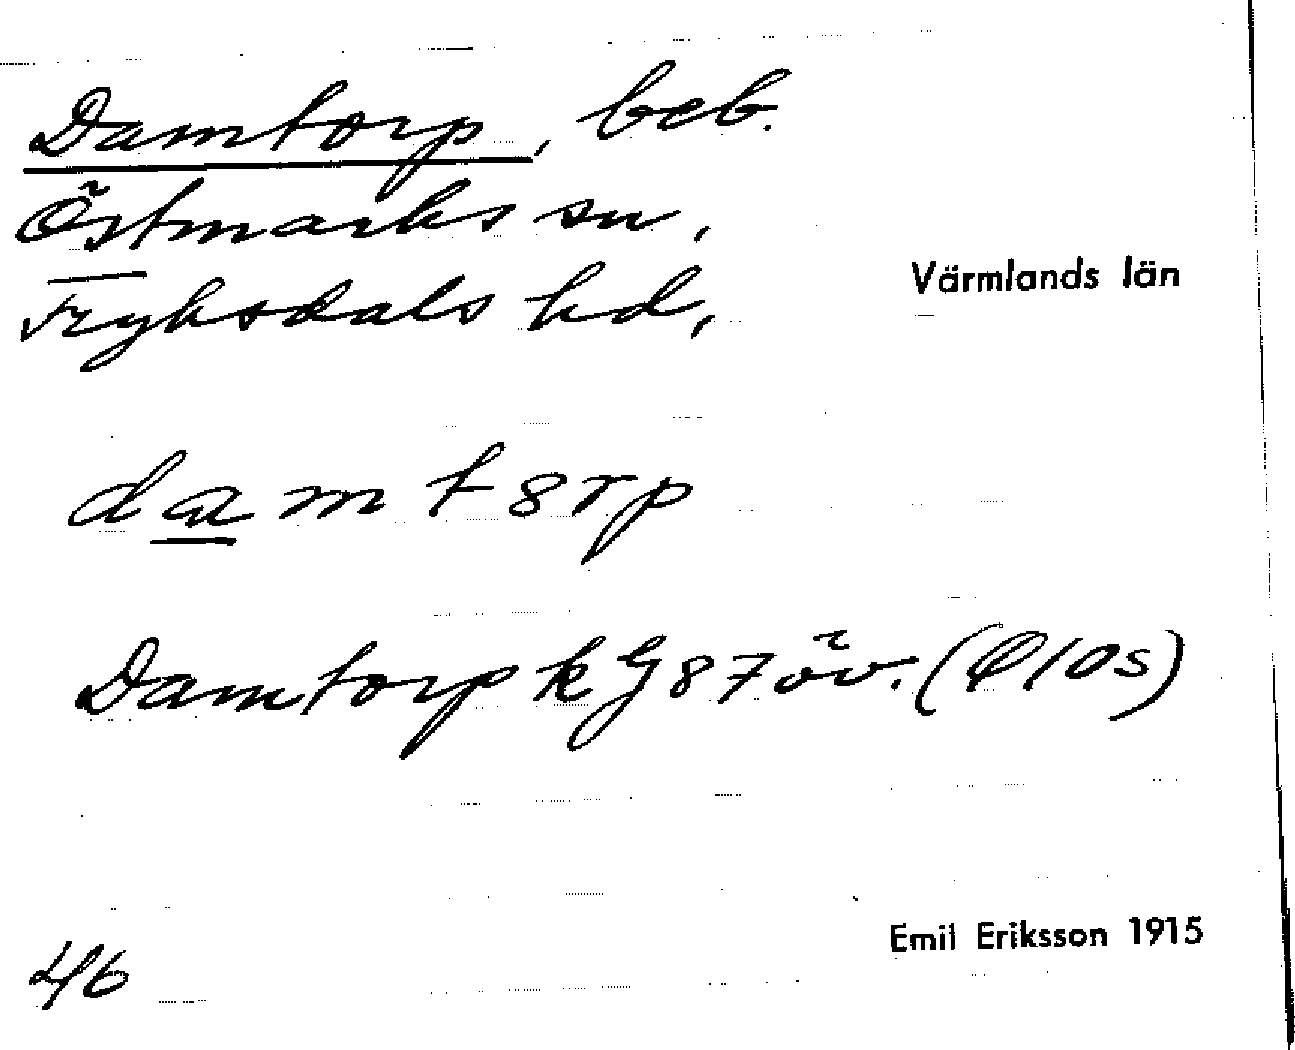 Damtorp, beb.
Östmarks sn,
Fryksdals hd,
Värmlands län
damt8rp
Damtorp k G 87 öv. (Q10s)
Emil Eriksson 1915
46